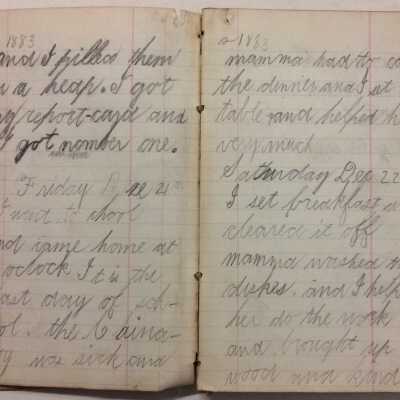 1883
and I pilled them
a heap. I got
report-card and
I got nomber one.
Friday Dece 21
I went to chool
and came home at
oclock It is the
last day of sch-
ol. the C aina-
was sick and
1883
mamma had to co
the dinner and I set
table and helped h
very much
Saturday Dec 22
I set breakfast a
cleared it off
mamma washed th
dykes. and I help
her do the work
and brought up
wood and kind